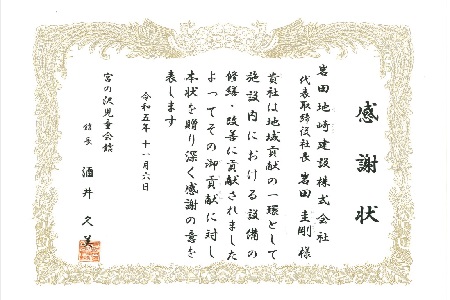 感謝状
岩田地崎建設株式会社
代表取締役社長 岩田圭剛様
貴社は地域貢献の一環として
施設内における設備の
修繕・改善に貢献されました
よってその御貢献に対し
本状を贈り深く感謝の意を
表します
令和五年十一月六日
宮の沢児童会館
館長 酒井久美